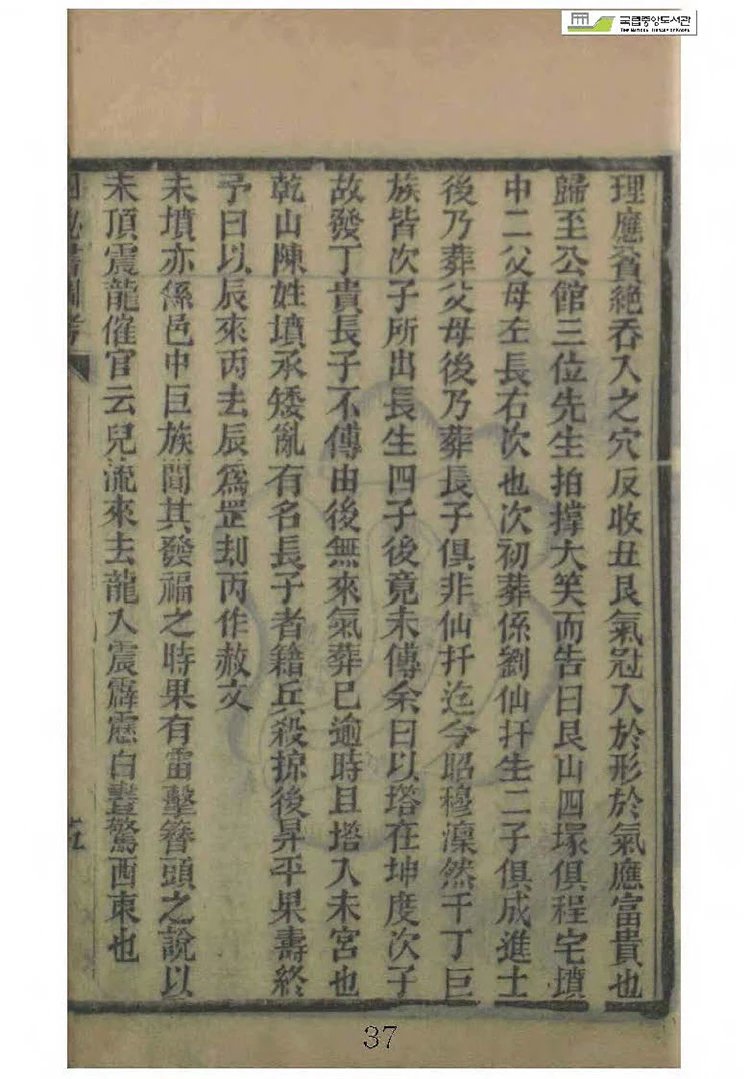 국립중앙도서관
THE NATIONAL LIBRARY OF KOREA
理應貧絶吞入之穴反收丑艮氣冠入於形於氣應富貴也
歸至公館三位先生拍撑大笑而告曰艮山四塚俱程宅墳
中二父母左長右次也次初葬係劉仙扦生二子俱成進士
後乃葬父母後乃葬長子俱非仙扦迄今昭穆凜然千丁巨
族皆次子所出長生四子後竟未傳余曰以塔在坤度次子
故發丁貴長子不傳由後無來氣葬已逾時且塔入未宮也
乾山陳姓墳承矮亂有名長子者籍兵殺掠後昇平果壽終
予曰以辰來丙去辰爲罡刦丙作赦文
未墳亦係邑中巨族聞其發福之時果有雷擊簪頭之說以
未頂震龍催官云兒流來去龍入震霹靂白晝驚西東也
五
37